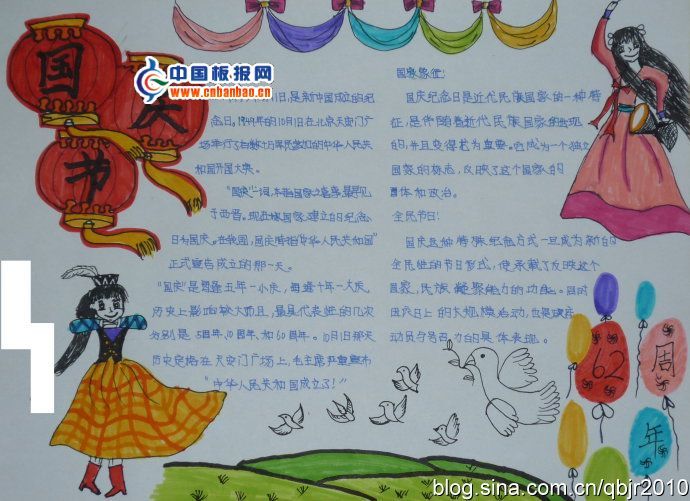 国庆节
中国板报网
www.cnbanbao.cn
月1日,是新中国成立的纪
念日。1949年的10月1日在北京天安门广
场举行了
的中华人民共
和国开国大典。
"国庆"一词,本指国家之喜事,最早见
于西晋。现在
国家建立的日纪念
日为国庆。在我国,国庆特指"中华人民共和国"
正式宣告成立的那一天。
"国庆"是每逢五年一小庆,每逢十年一大庆。
历史上影响较大而且,最具代表性的几次
分别是5周年、10周年、和60周年。10月1日那天
历史定格在天安门广场上,毛主席严重宣布
"中华人民共和国成立了!"
国家象征:
国庆纪念日是近代民族国家的一种特
征,是伴随着近代民族国家的出现
的,并且变得尤为重要。它成为一个独立
国家的标志,反映了这个国家的
国体和政治。
全民节日:
国庆这种特殊纪念方式一旦成为新的
全民性的节日形式,便承载了反映这个
国家,民族凝聚能力的功能。同时
国庆日上的大规模活动,也是政府
动员与号召力的具体表现。
62周年
blog.sina.com.cn/qbjr2010